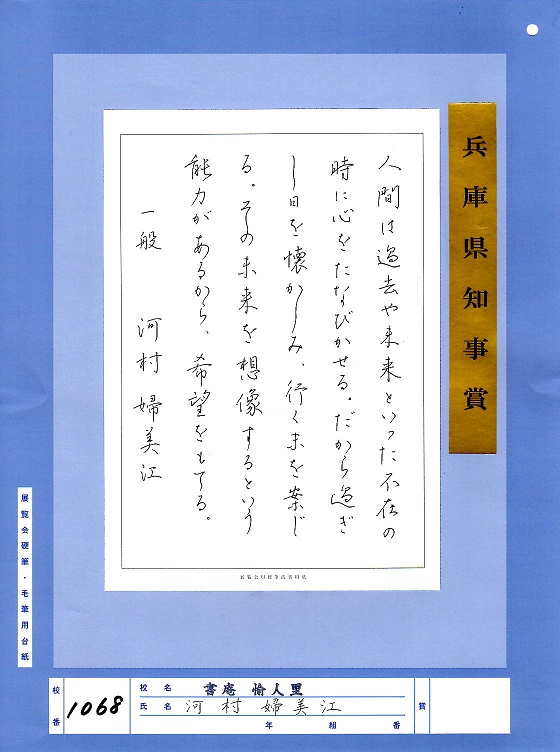 兵庫県知事賞
人間は過去や未来といった不在の
時に心をたなびかせる。だから過ぎ
し日を懐かしみ、行く末を案じ
る。その未来を想像するという
能力があるから、希望をもてる。
一般 河村 婦美江
展覧会硬筆・毛筆用台紙
校番 1068
校名 書庵 愉人里
氏名 河村婦美江
年 組 番
賞